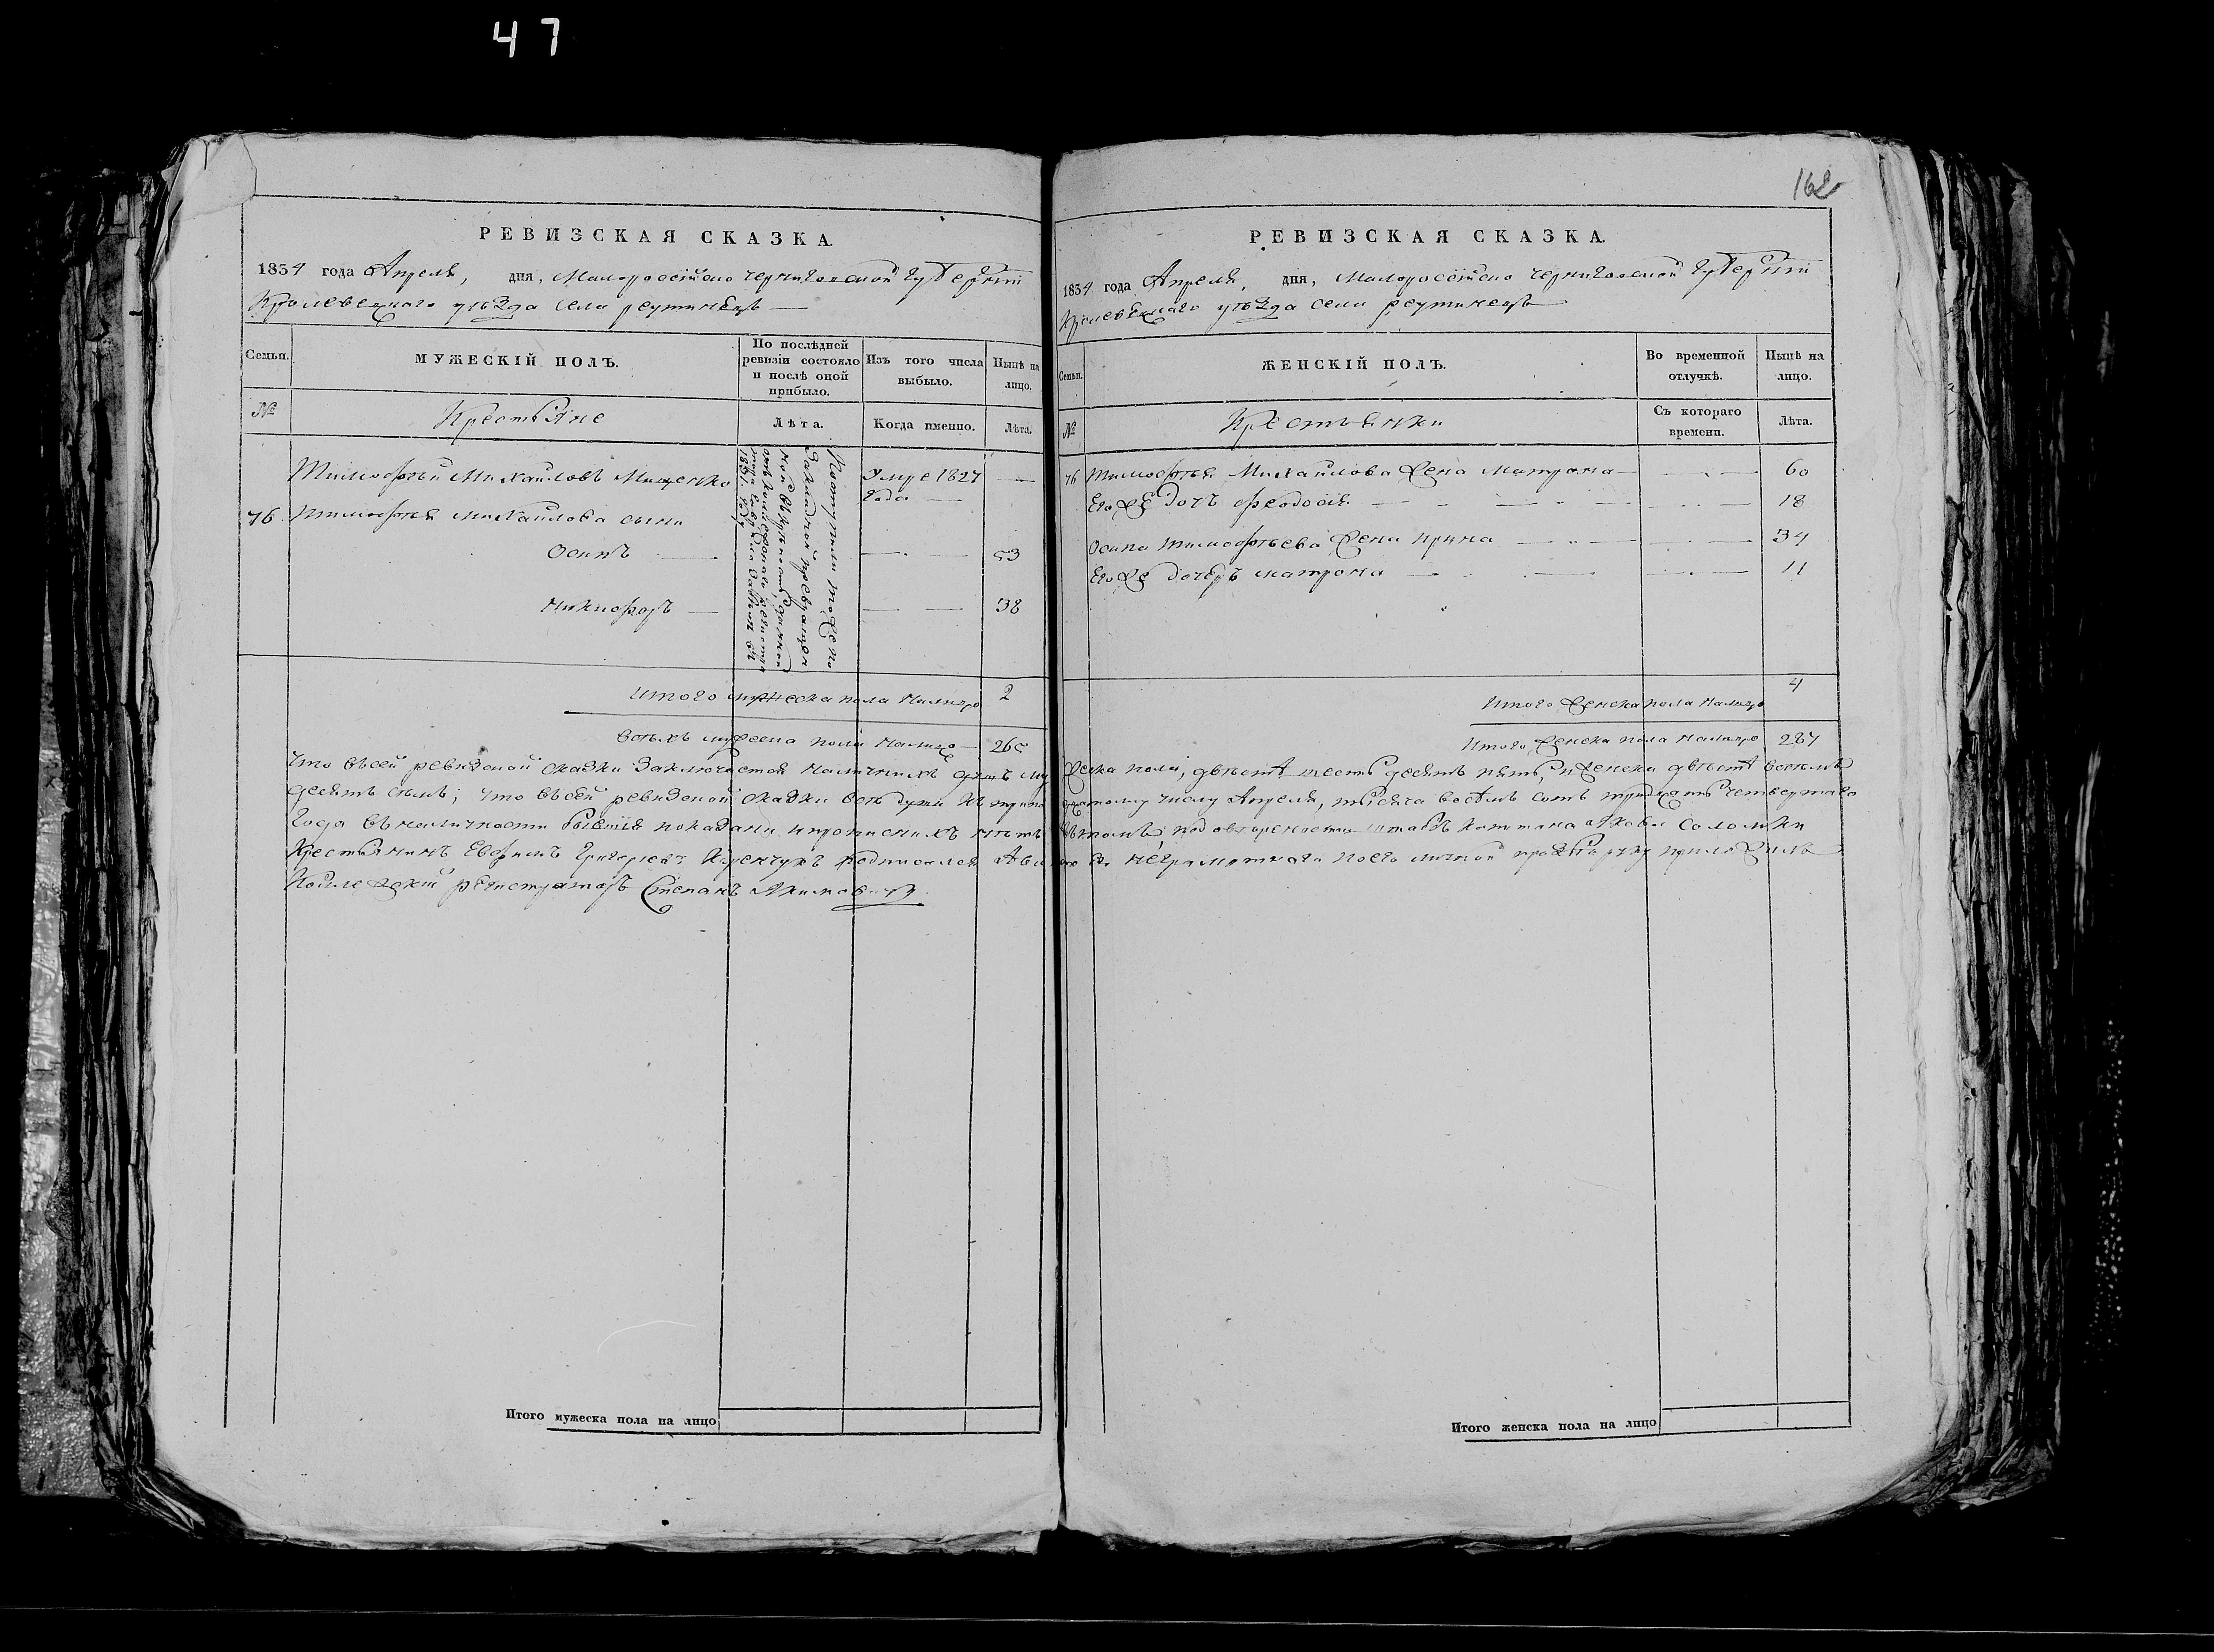 47
РЕВИЗСКАЯ СКАЗКА.
1834 года Апреля, дня, Малороссійско Черниговской Губерніи
Кролевецкаго уѣзда села реутинецъ
Семьи.
МУЖЕСКІЙ ПОЛЪ.
По послѣдней ревизіи состояло и послѣ оной прибыло.
Изъ того числа выбыло.
Нынѣ на лицо.
№
Крестьяне
Лѣта.
Когда именно.
Лѣта.
Тимофѣй Михайловъ Мищенко
Умре 1827 года
76 Тимофѣя Михайлова сыни
Осипъ 53
Никифоръ 38
Поступили
1831 году
Итого мужеска пола налицо 2
Всѣхъ мужеска пола налицо 265
162
РЕВИЗСКАЯ СКАЗКА.
1834 года Апреля, дня, Малороссійско Черниговской Губерніи
Кролевецкаго уѣзда села реутинецъ
Семьи.
ЖЕНСКІЙ ПОЛЪ.
Во временной отлучкѣ.
Нынѣ на лицо.
№
Крестьянки
Съ котораго времени.
Лѣта.
76 Тимофѣя Михайлова жена Матрона 60
Его же дочь Феодосія 18
Осипа Тимофѣева жена Ирина 34
Его же дочеръ Матрона 11
Итого женска пола налицо 4
Итого женска пола налицо 287
Что въсей ревизской сказки заключается наличнихъ душъ мужеска пола, двѣстѣ шестьдесятъ пять, и женска двѣстѣ восемь
десятъ семь; что въсей ревизской сказки всѣ души къ числу Апреля, тысяча восемъ сотъ тридцать четвертаго
года въналичности бывшія показани, и прописнихъ нѣтъ вътомъ; штабъ капитана Соломки
Крестьянинъ Евфимъ Григорьевъ подписался неграмотнаго поего личной прозьби руку приложилъ
Коллежскій регистраторъ Степанъ Акимовичъ
Итого мужеска пола на лицо
Итого женска пола на лицо